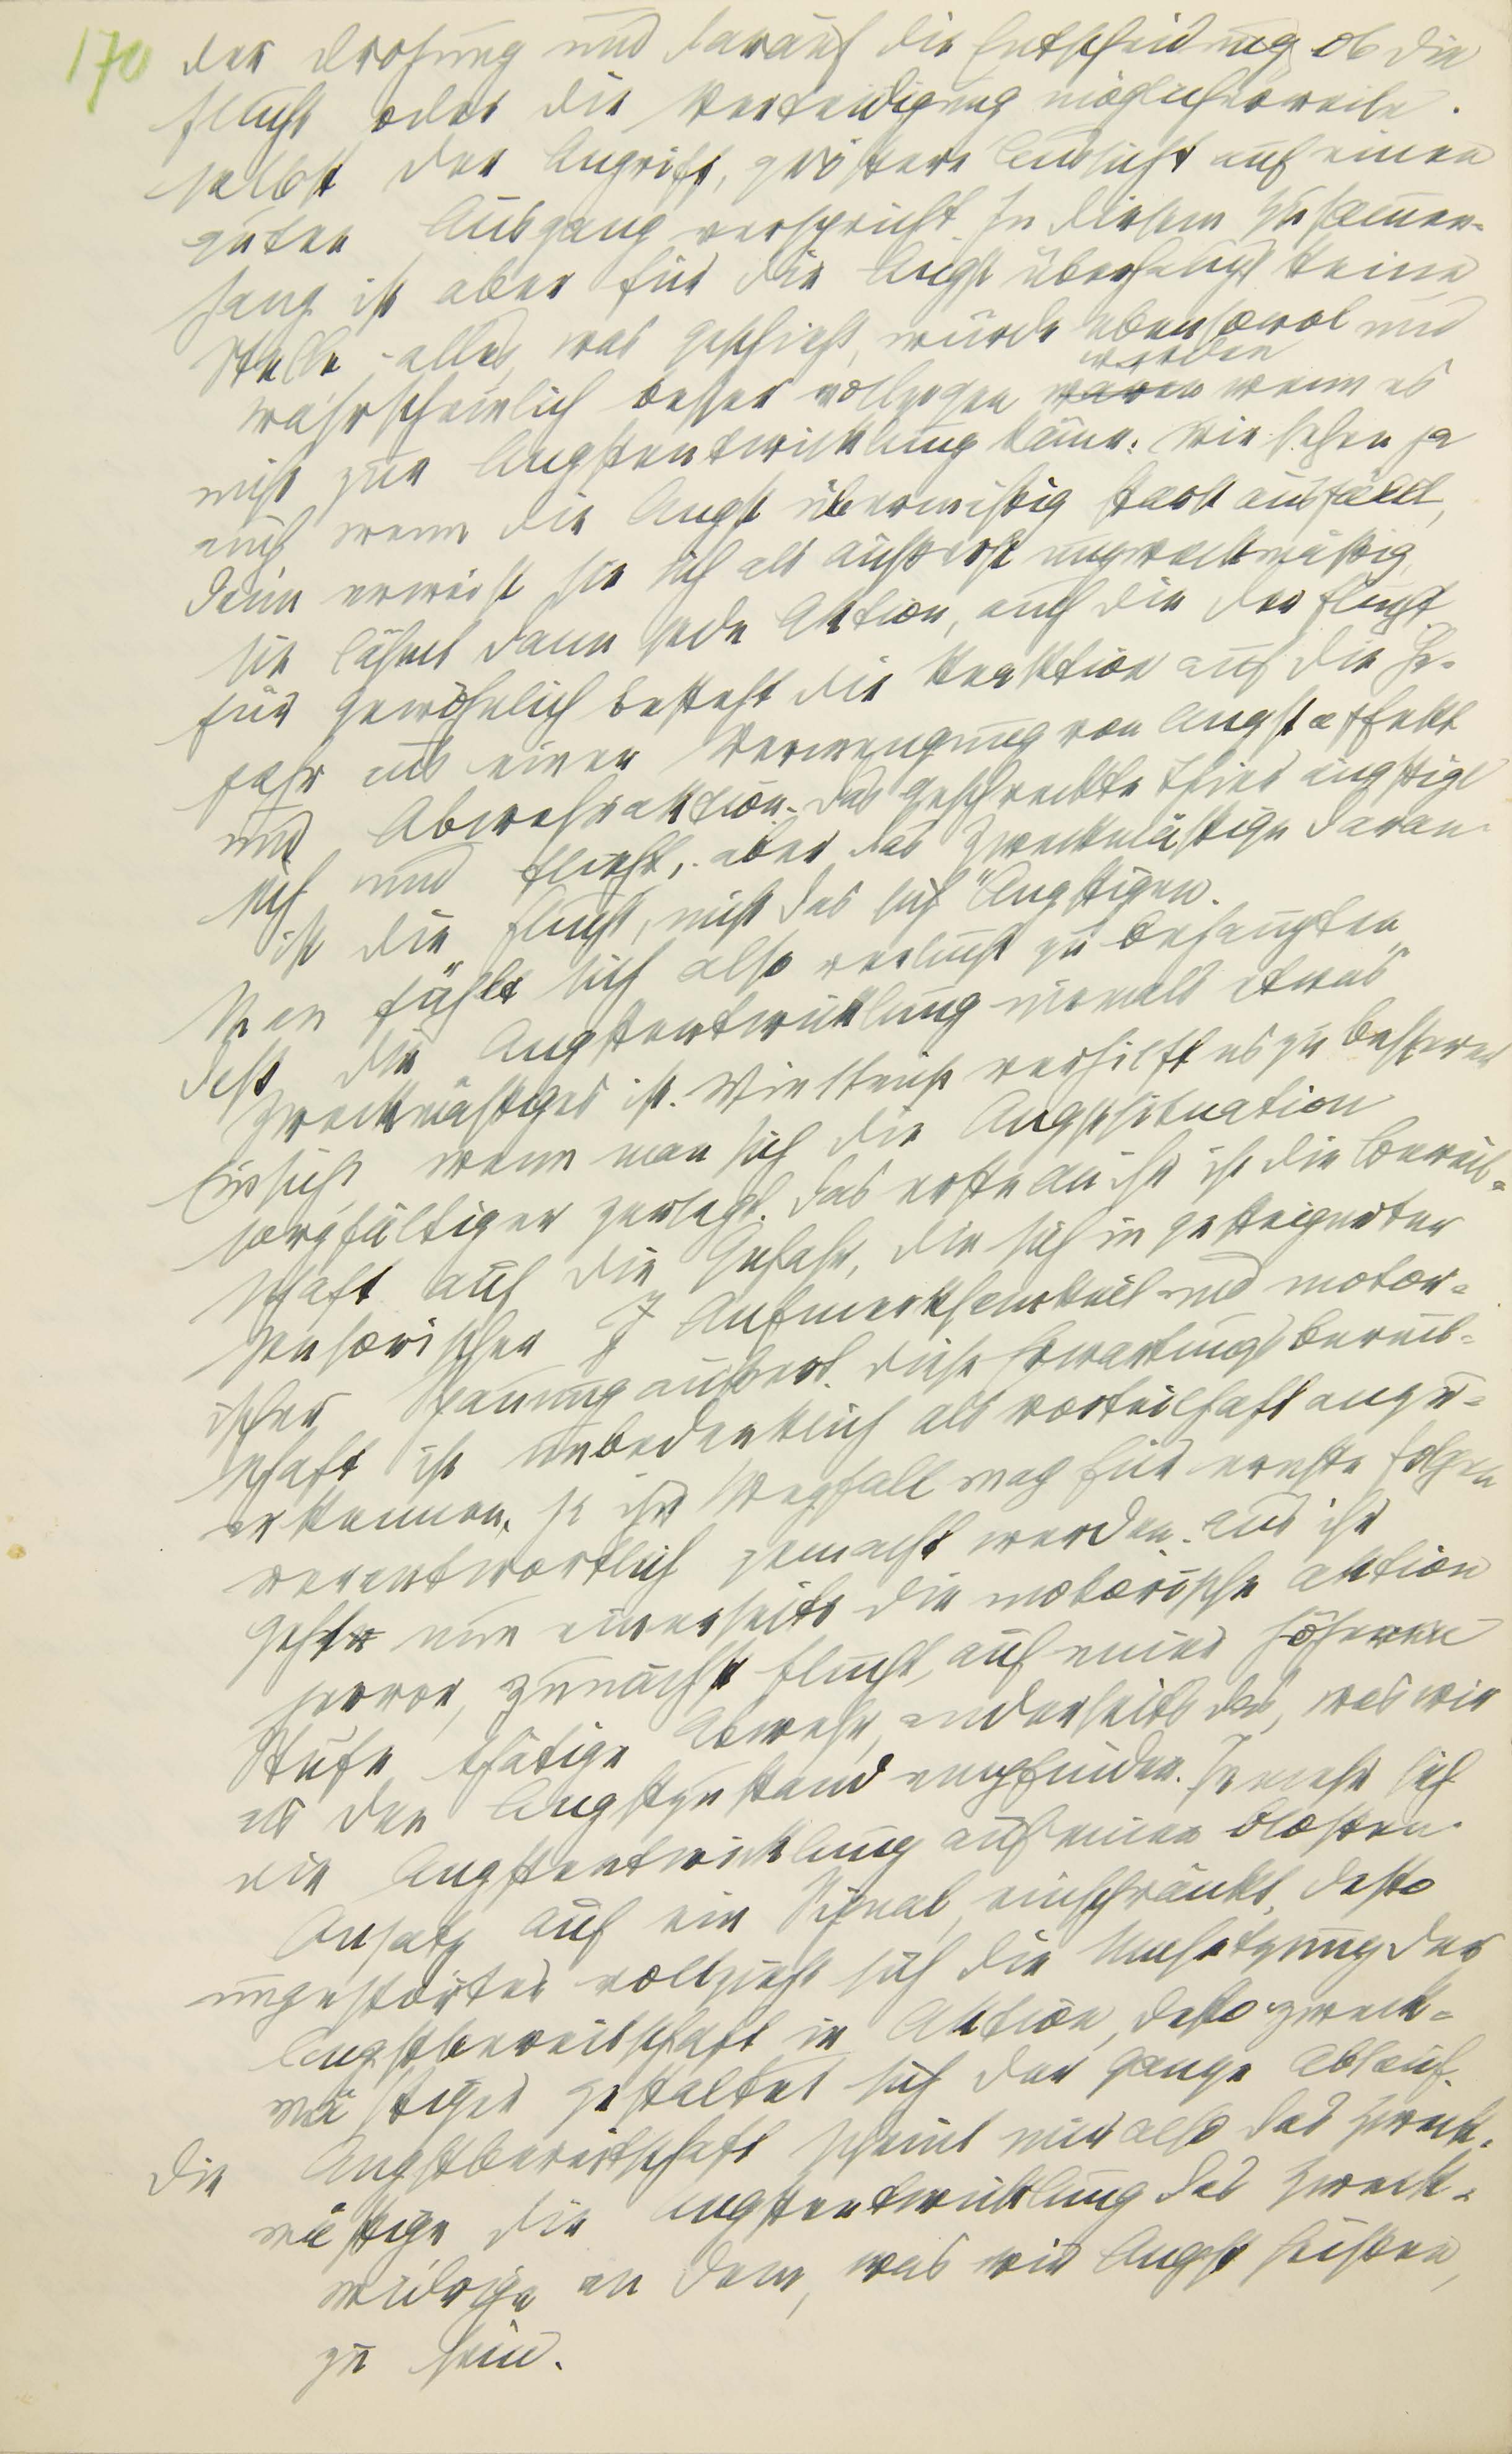 170
der Drohung und darauf die Entscheidung ob die
Flucht oder die Verteidigung möglicherweise
selbst der Angriff, größere Aussicht auf einen
guten Ausgang verspricht. In diesem Zusammen-
hang ist aber für die Angst überhaupt keine
Stelle, alles, was geschieht, würde ebensowol und
werden
wahrscheinlich besser vollzogen waren wenn es
nicht zur Angstentwicklung käme. Wir sehen ja
auch wenn die Angst übermäßig stark ausfällt,
dann erweist sie sich als äußerst unzweckmäßig,
sie lähmt dann jede Aktion, auch die der Flucht.
Für gewöhnlich besteht die Reaktion auf die Ge-
fahr aus einer Vermengung von Angstaffekt
und Abwehraktion. Das geschreckte Thier ängstigt
sich und flieht, aber das Zweckmäßige daran
ist die „Flucht, nicht das sich Ängstigen.
Man fühlt sich also versucht zu behaupten,
daß die Angstentwicklung niemals etwas
Zweckmäßiges ist. Vielleicht verhilft es zu besserer
Einsicht wenn man sich die Angstsituation
sorgfältiger zerlegt. Das erste an ihr ist die Bereit-
schaft auf die Gefahr, die sich in gesteigerter
sensorischer Aufmerksamkeit und motor-
ischer Spannung äußert. Diese Erwartungsbereit-
schaft ist unbedenklich als vorteilhaft anzu-
erkennen, ja ihr Wegfall mag für ernste Folgen
verantwortlich gemacht werden. Aus ihr
geht nun einerseits die motorische Aktion
hervor, zunächst Flucht, auf einer höheren
Stufe thätige Abwehr, anderseits das, was wir
als den Angstzustand empfinden. Je mehr sich
die Angstentwicklung auf einen bloßen
Ansatz auf ein Signal, einschränkt, desto
ungestörter vollzieht sich die Umsetzung der
Angstbereitschaft in Aktion, desto zweck-
mäßiger gestaltet sich der ganze Ablauf.
Die Angstbereitschaft scheint mir also das Zweck-
mäßige die Angstentwicklung das Zweck-
widrige an dem, was wir Angst heißen,
zu sein.